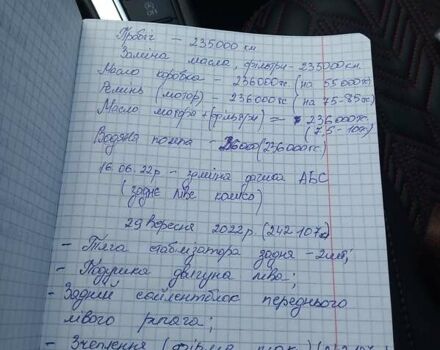 Пробіг – 235000 км
Заміна масла, фільтри – 235000 км.
Масло коробка – 236000 тк. (на 55000 тк)
Ремінь (мотор) – 236000 тк (на 75-85 тк)
Масло мотора + (фільтри) = 236000 тк.
(7,5-10 тк)
Водяна помпа – (236000 тк)
16.06.22р – заміна датчика АБС
(заднє ліве колесо)
29 вересня 2022р. (242 107 к)
- Тяга стабілізатора задня – 2шт;
- Подушка двигуна ліва;
- Задній сайлентблок переднього
лівого рычага;
- Зчеплення (фірма